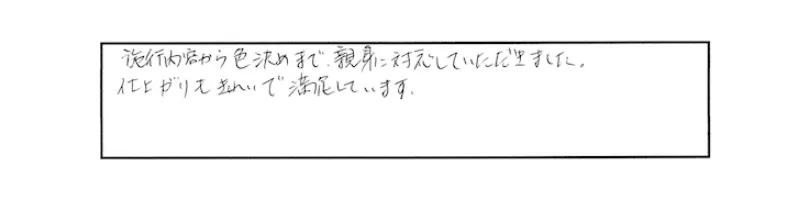 施行内容から色決めまで、親身に対応していただきました。
仕上がりもきれいで満足しています。